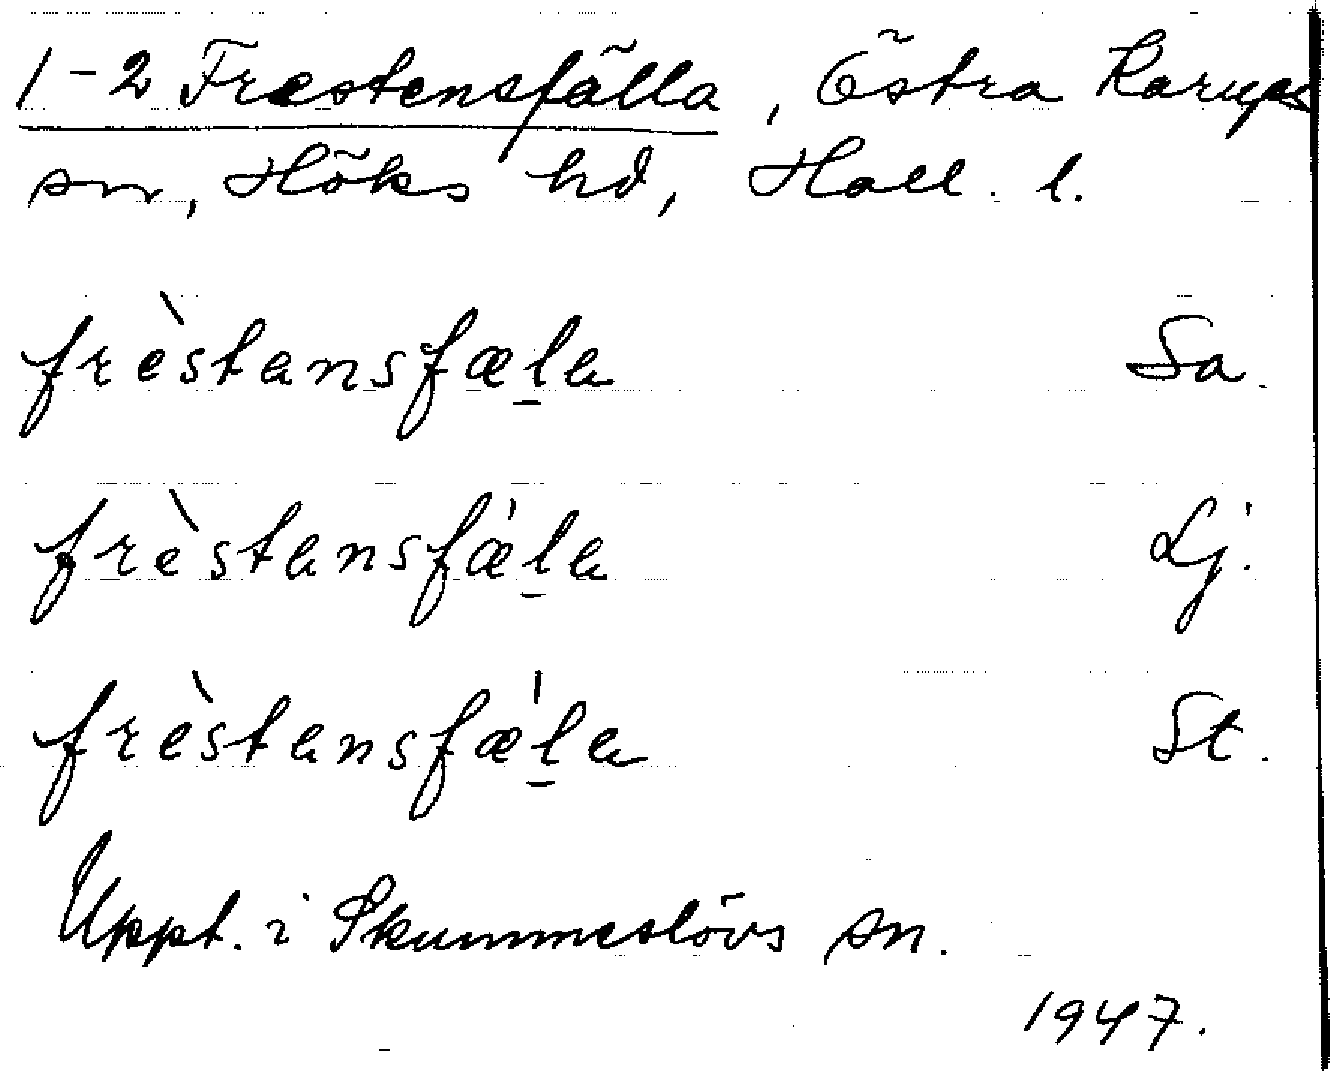 1-2 Frestensfälla, Östra Karups
sn, Höks hd, Hall. l.
frèstansfæla Sa.
frèstansfæ'la Lj.
frèstansfæ'la St.
Uppt. i Skummeslövs sn.
1947.